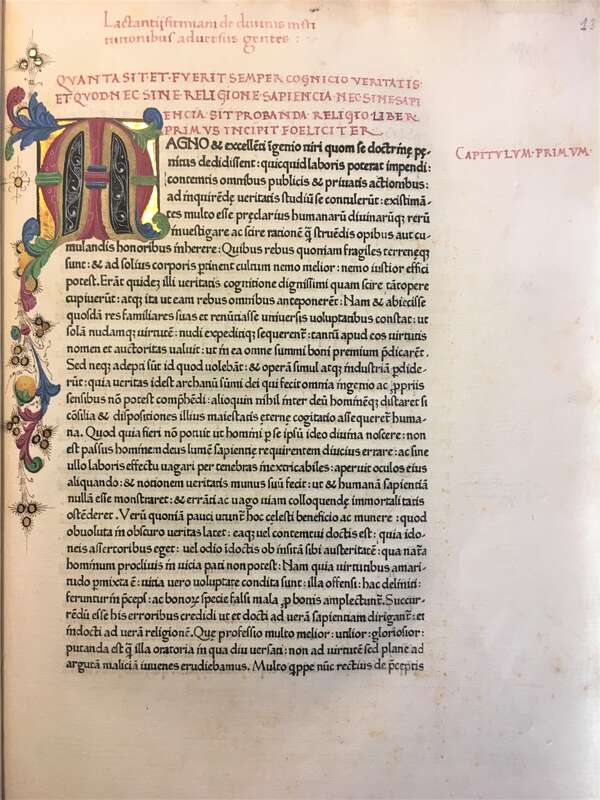 Lactantii firmiani de diuinis insti
tutionibus aduersus gentes :
13
QVANTA SIT· ET· FVERIT SEMPER COGNICIO VERITATIS·
ET QVOD NEC SINE· RELIGIONE· SAPIENCIA NEC SINE SAPI
ENCIA· SIT PROBANDA RELIGIO LIBER
PRIMVS INCIPIT FOELICITER
CAPITVLVM· PRIMVM·
MAGNO & excellēti īgenio uiri quom se doctrinę pę-
nitus dedidissent : quicquid laboris poterat impendi :
contemtis omnibus publicis & priuatis actionibus :
ad inquirendę ueritatis studiū se contulerūt : existimā-
tes multo esse pręclarius humanarū diuinarūqȝ rerū
inuestigare ac scire rationē q̄ struēdis opibus aut cu-
mulandis honoribus inherere : Quibus rebus quoniam fragiles terrenęqȝ
sunt : & ad solius corporis ꝑtinent cultum nemo melior : nemo iustior effici
potest. Erāt quideȝ illi ueritatis cognitione dignissimi quam scire tātopere
cupiuerūt : atqȝ ita ut eam rebus omnibus anteponerent : Nam & abiecisse
quosdā res familiares suas et renūtiasse uniuersis uoluptatibus constat : ut
solā nudamqȝ uirtutē : nudi expeditiqȝ sequerent᷑ : tantū apud eos uirtutis
nomen et auctoritas ualuit : ut in ea omne summi boni premium p̄dicarēt .
Sed neqȝ adepti sūt id quod uolebāt : & operā simul atqȝ industriā ꝑdide-
rūt : quia ueritas idest archanū sūmi dei qui fecit omnia ingenio ac ꝓpriis
sensibus nō potest comp̄hēdi : alioquin nihil inter deū hominēqȝ distaret si
cōsilia & dispositiones illius maiestatis ęternę cogitatio assequeret᷑ huma-
na . Quod quia fieri nō potuit ut homini ꝑ se ip̄sū ideo diuina nosceret : non
est passus hominem deus lumē sapientię requirentem diucius errare : ac sine
ullo laboris effectu uagari per tenebras inextricabiles : aperuit oculos eius
aliquando : & notionem ueritatis munus suū fecit : ut & humanā sapientiā
nullā esse monstraret : & errāti ac uago uiam colloquendę immortalitatis
ostēderet . Verū quoniā pauci utunt᷑ hoc celesti beneficio ac munere : quod
obuoluta in obscuro ueritas latet : eaqȝ uel contemtui doctis est : quia ido-
neis assertoribus eget : uel odio īdoctis ob insitā sibi austeritatē : qua natᷓa
hominum procliuis in uicia pati non potest : Nam quia uirtutibus amari-
tudo ꝑmixta ē : uitia uero uoluptate condita sunt : illa offensi : hac deliniti :
feruntur in p̄ceps : ac bonoꝝ specie falsi mala ꝓ bonis amplectunt᷑. Succur-
rēdū esse his erroribus credidi ut et docti ad uerā sapientiam dirigant᷑ : et
īdocti ad uerā religionē . Quę professio multo melior : utilior : gloriosior :
putanda est q̄ illa oratoria in qua diu uersati : non ad uirtutē sed plane ad
argutā maliciā iuuenes erudiebamus. Multo q̄ppe nūc rectius de p̄ceptis